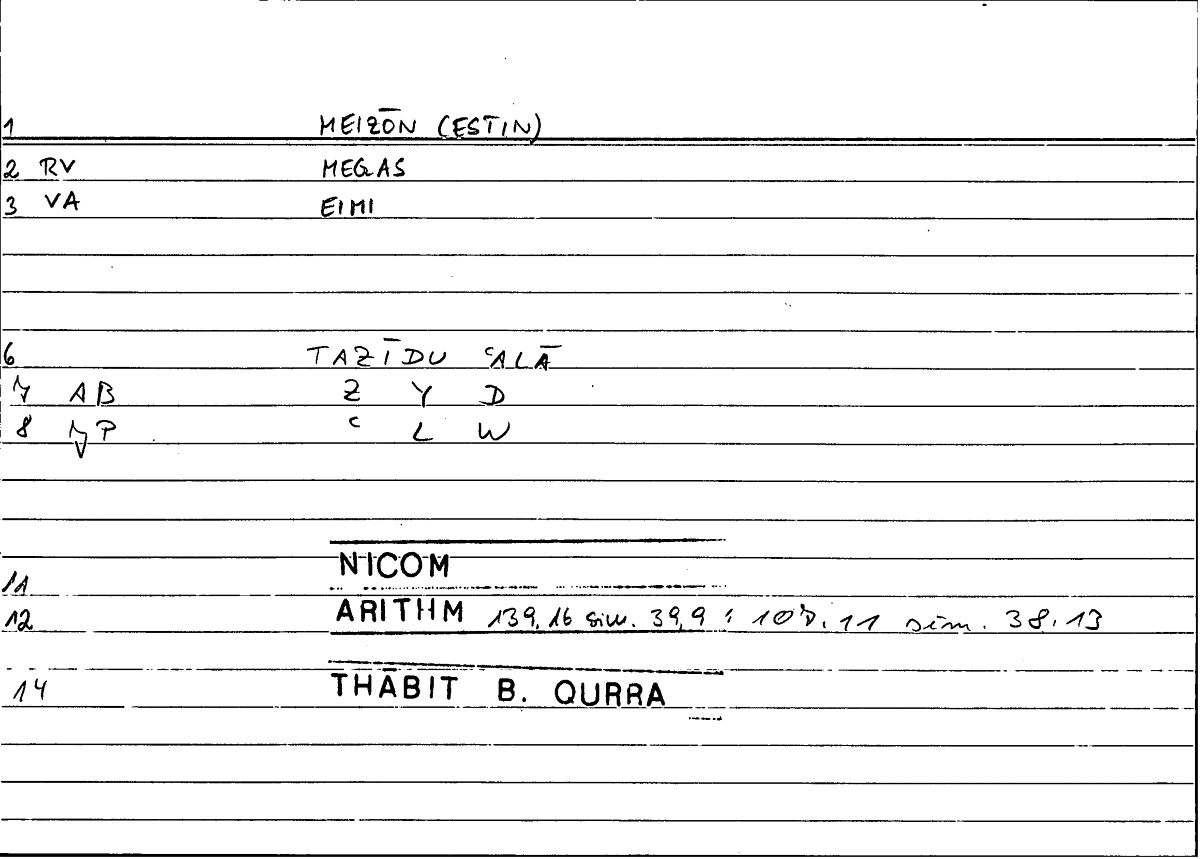 1 MEIZŌN (ESTIN)
2 RV MEGAS
3 VA EIMI
6 TAZĪDU ʿALĀ
7 AB Z Y D
8 P ʿ L W
11 NICOM
12 ARITHM 139,16 sim. 39,9 : 107,11 sim. 38,13
14 THĀBIT B. QURRA